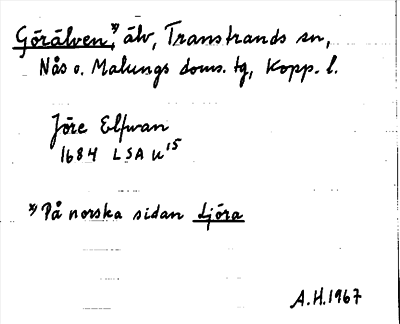 Görälven,*) älv, Transtrands sn,
Nås o. Malungs doms. tg, Kopp. l.
Jöre Elfwan
1684 LSA u15
*) På norska sidan Ljöra
A.H. 1967